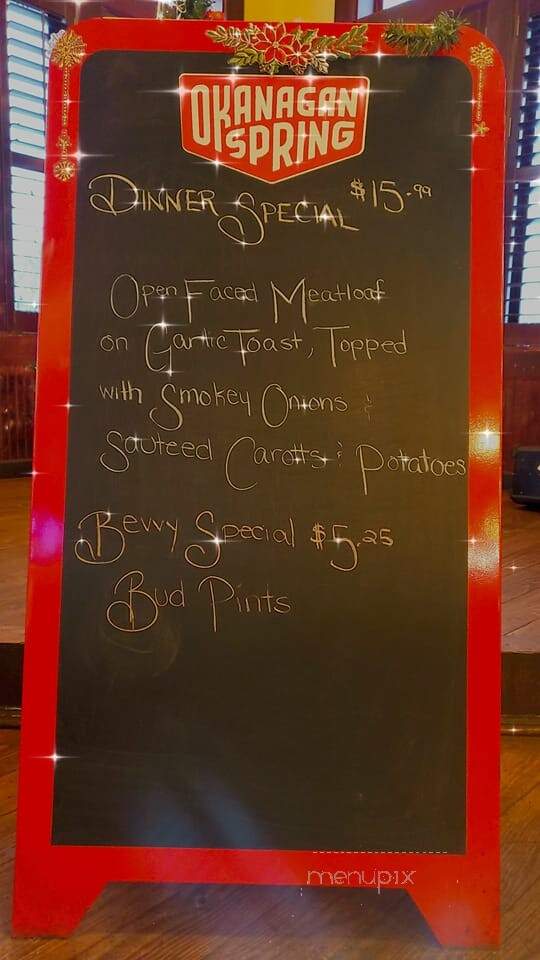 OKANAGAN
SPRING
DINNER SPECIAL $15.99
Open Faced Meatloaf
on Garlic Toast, Topped
with Smokey Onions &
Sauteed Carotts & Potatoes
Bevvy Special $5.25
Bud Pints
menupix